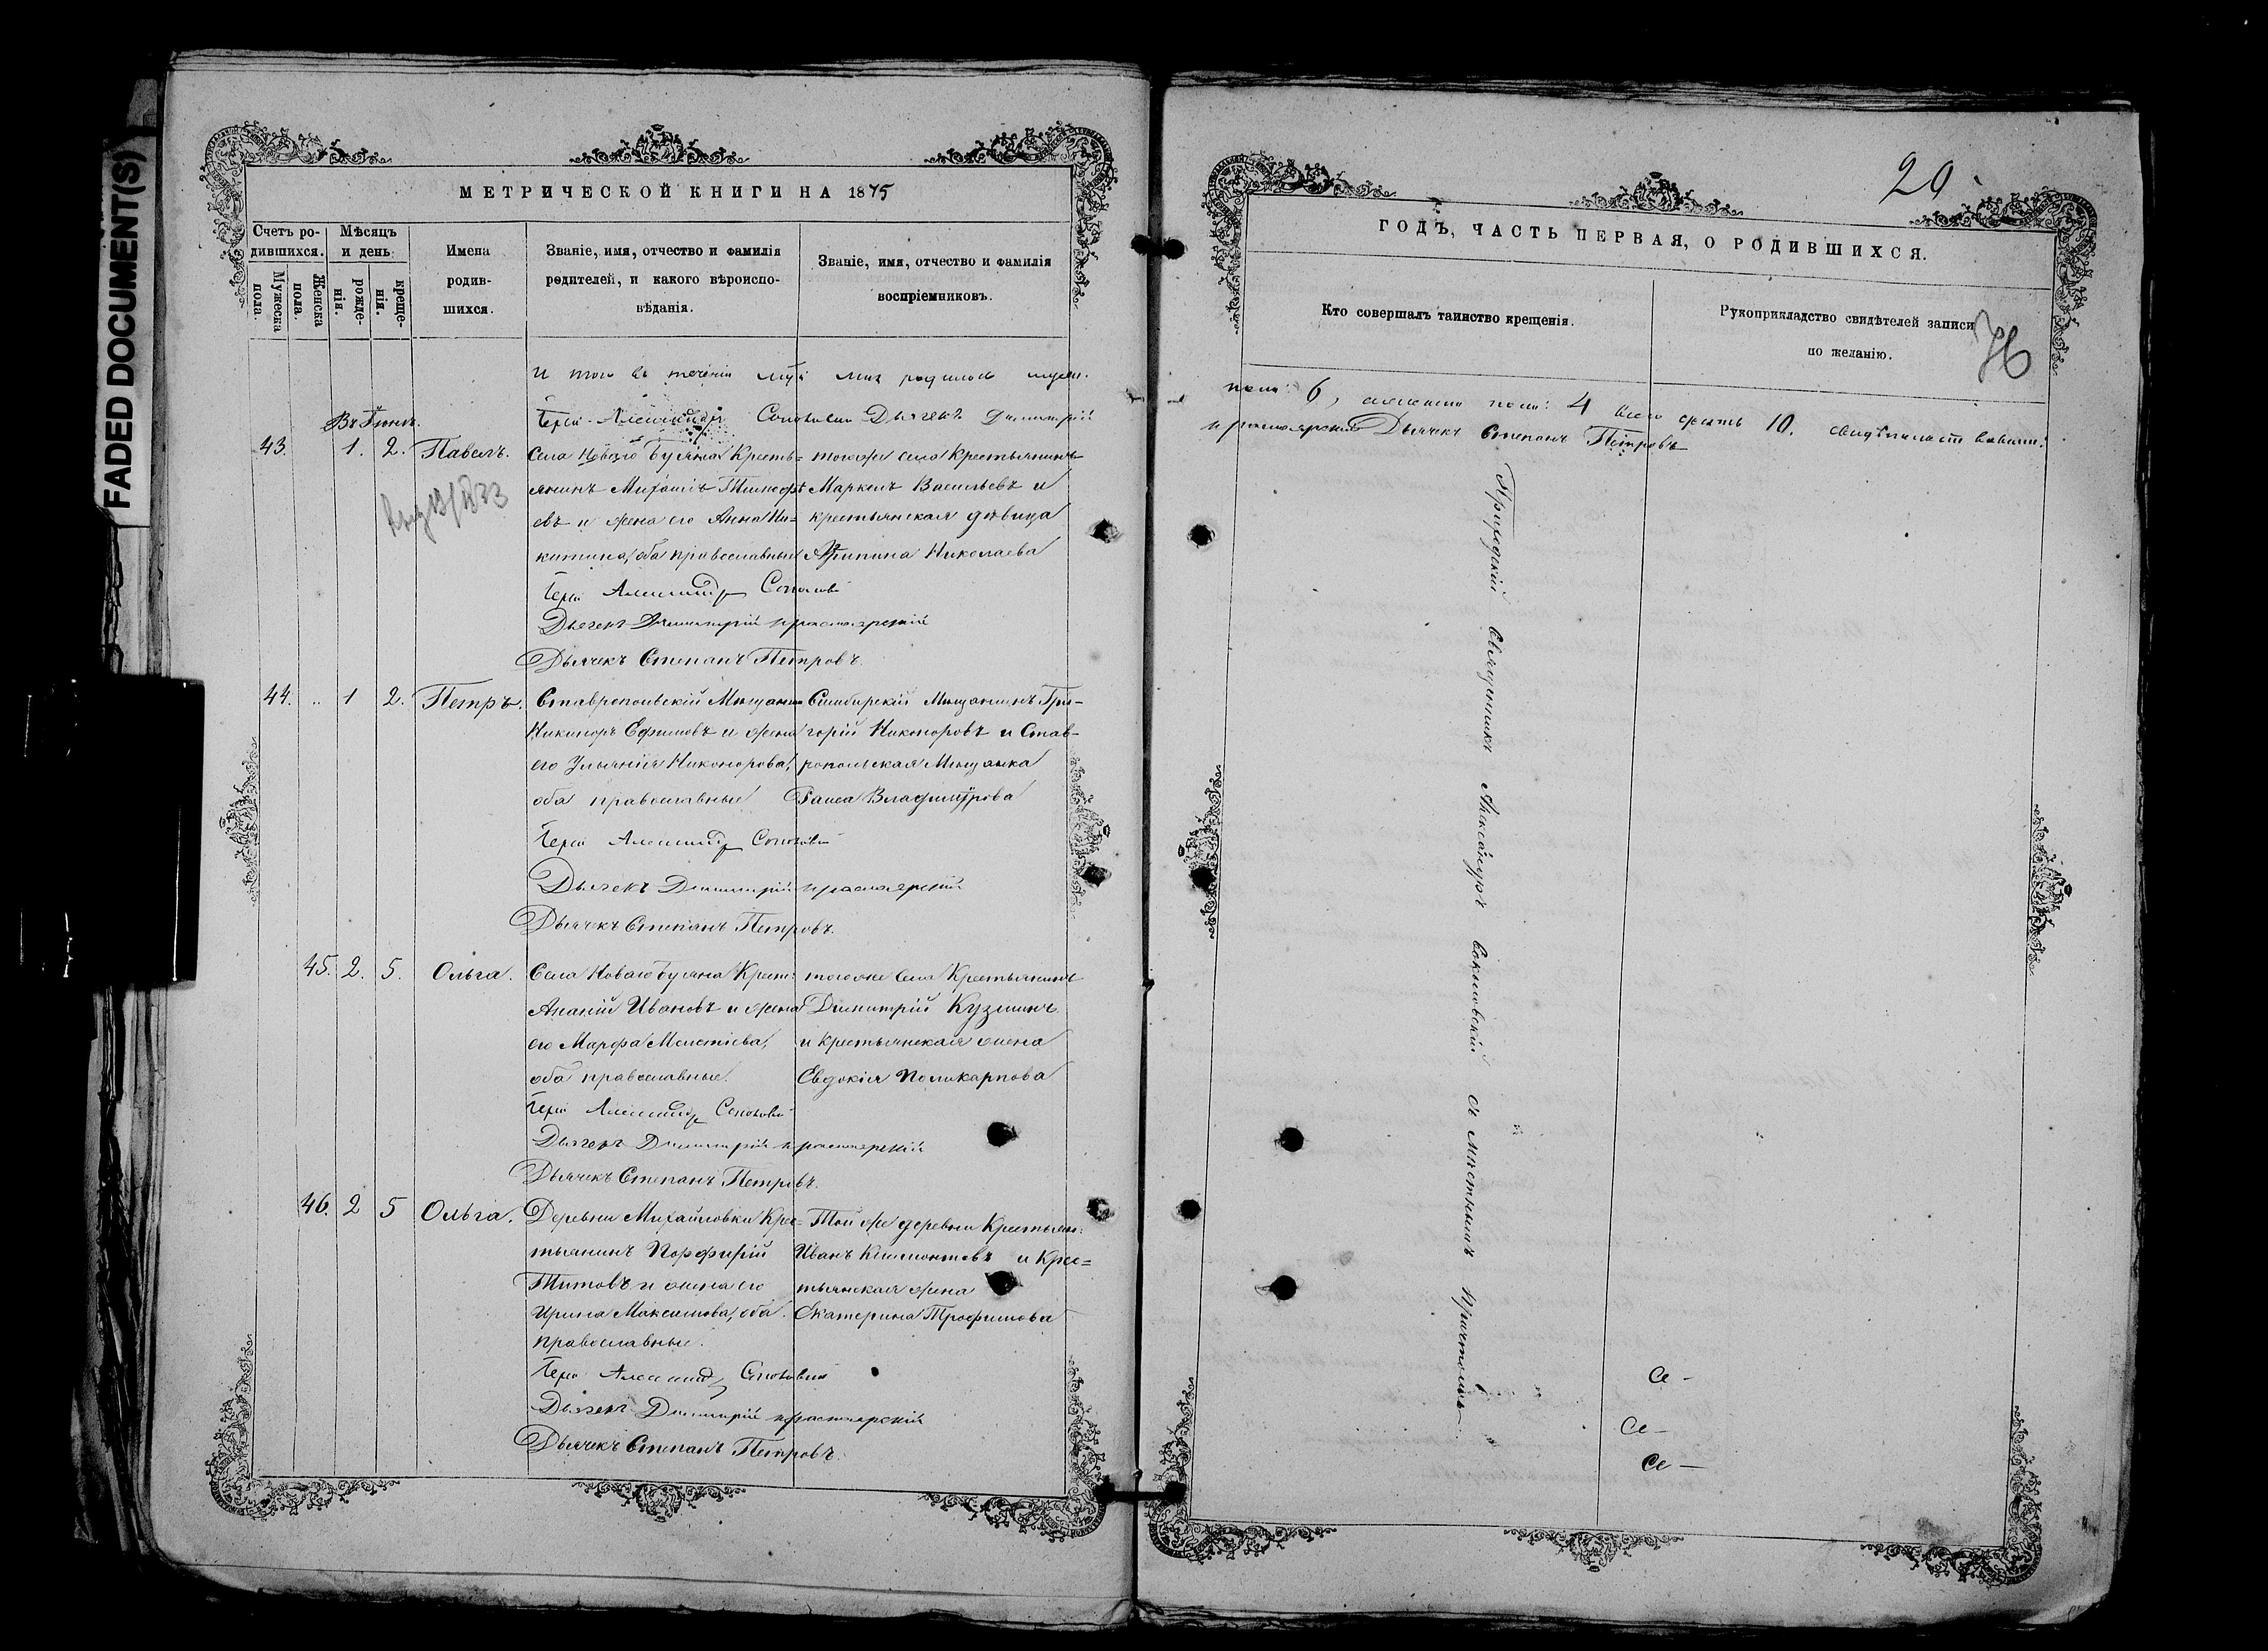 FADED DOCUMENT(S)
МЕТРИЧЕСКОЙ КНИГИ НА 1875
Счетъ ро-
дившихся.
Мужеска
пола.
Женска
пола.
Мѣсяцъ
и день
рожде-
нія.
креще-
нія.
Имена
родив-
шихся.
Званіе, имя, отчество и фамилія
родителей, и какого вѣроиспо-
вѣданія.
Званіе, имя, отчество и фамилія
воспріемниковъ.
родилось
Дьячекъ Димитрій
Въ Іюнѣ
43. 1. 2. Павелъ.
Села Новаго Буяна Кресть=
янинъ Михаилъ Тимофе
евъ и жена его Анна Ни=
китина, оба православные
тогоже села Крестьянинъ
Маркелъ Васильевъ и
крестьянская дѣвица
Агрипина Николаева
Іерей Александръ
Дьячекъ Димитрій Красноярскій
Дьячекъ Степанъ Петровъ.
44. „ 1 2. Петръ.
Ставропольскій Мещанин
Никаноръ Ефимовъ и жена
его Ульянія Никонорова,
оба православные
Симбирскій Мещанинъ Гри-
горій Никоноровъ и Став-
ропольская Мещанка
Раиса Владимірова
Іерей Александръ
Дьячекъ Димитрій Красноярскій
Дьячекъ Степанъ Петровъ.
45. 2. 5. Ольга.
Села Новаго Буяна Крест:
Ананій Ивановъ и жена
его Марфа Мелетіева,
оба православные.
тогоже села Крестьянинъ
Димитрій Кузминъ
и крестьянская жена
Евдокія Поликарпова
Іерей Александръ
Дьячекъ Димитрій Красноярскій
Дьячекъ Степанъ Петровъ.
46. 2 5 Ольга.
Деревни Михайловки Крес=
тьянинъ Порфирій
Титовъ и жена его
Ирина Максимова, оба
православные.
Той же деревни Крестьян:
Иванъ Климонтовъ и Крес=
тьянская жена
Екатерина Трофимова
Іерей Александръ
Дьячекъ Димитрій Красноярскій
Дьячекъ Степанъ Петровъ.
ГОДЪ, ЧАСТЬ ПЕРВАЯ, О РОДИВШИХСЯ.
Кто совершалъ таинство крещенія.
Рукоприкладство свидѣтелей записи
по желанію.
пола: 6, женска пола: 4 всего 10.
Красноярскій Дьячекъ Степанъ Петровъ
Приходскій Священникъ Александръ Соколовскій съ мѣстнымъ причтомъ
Се -
Се -
Се -